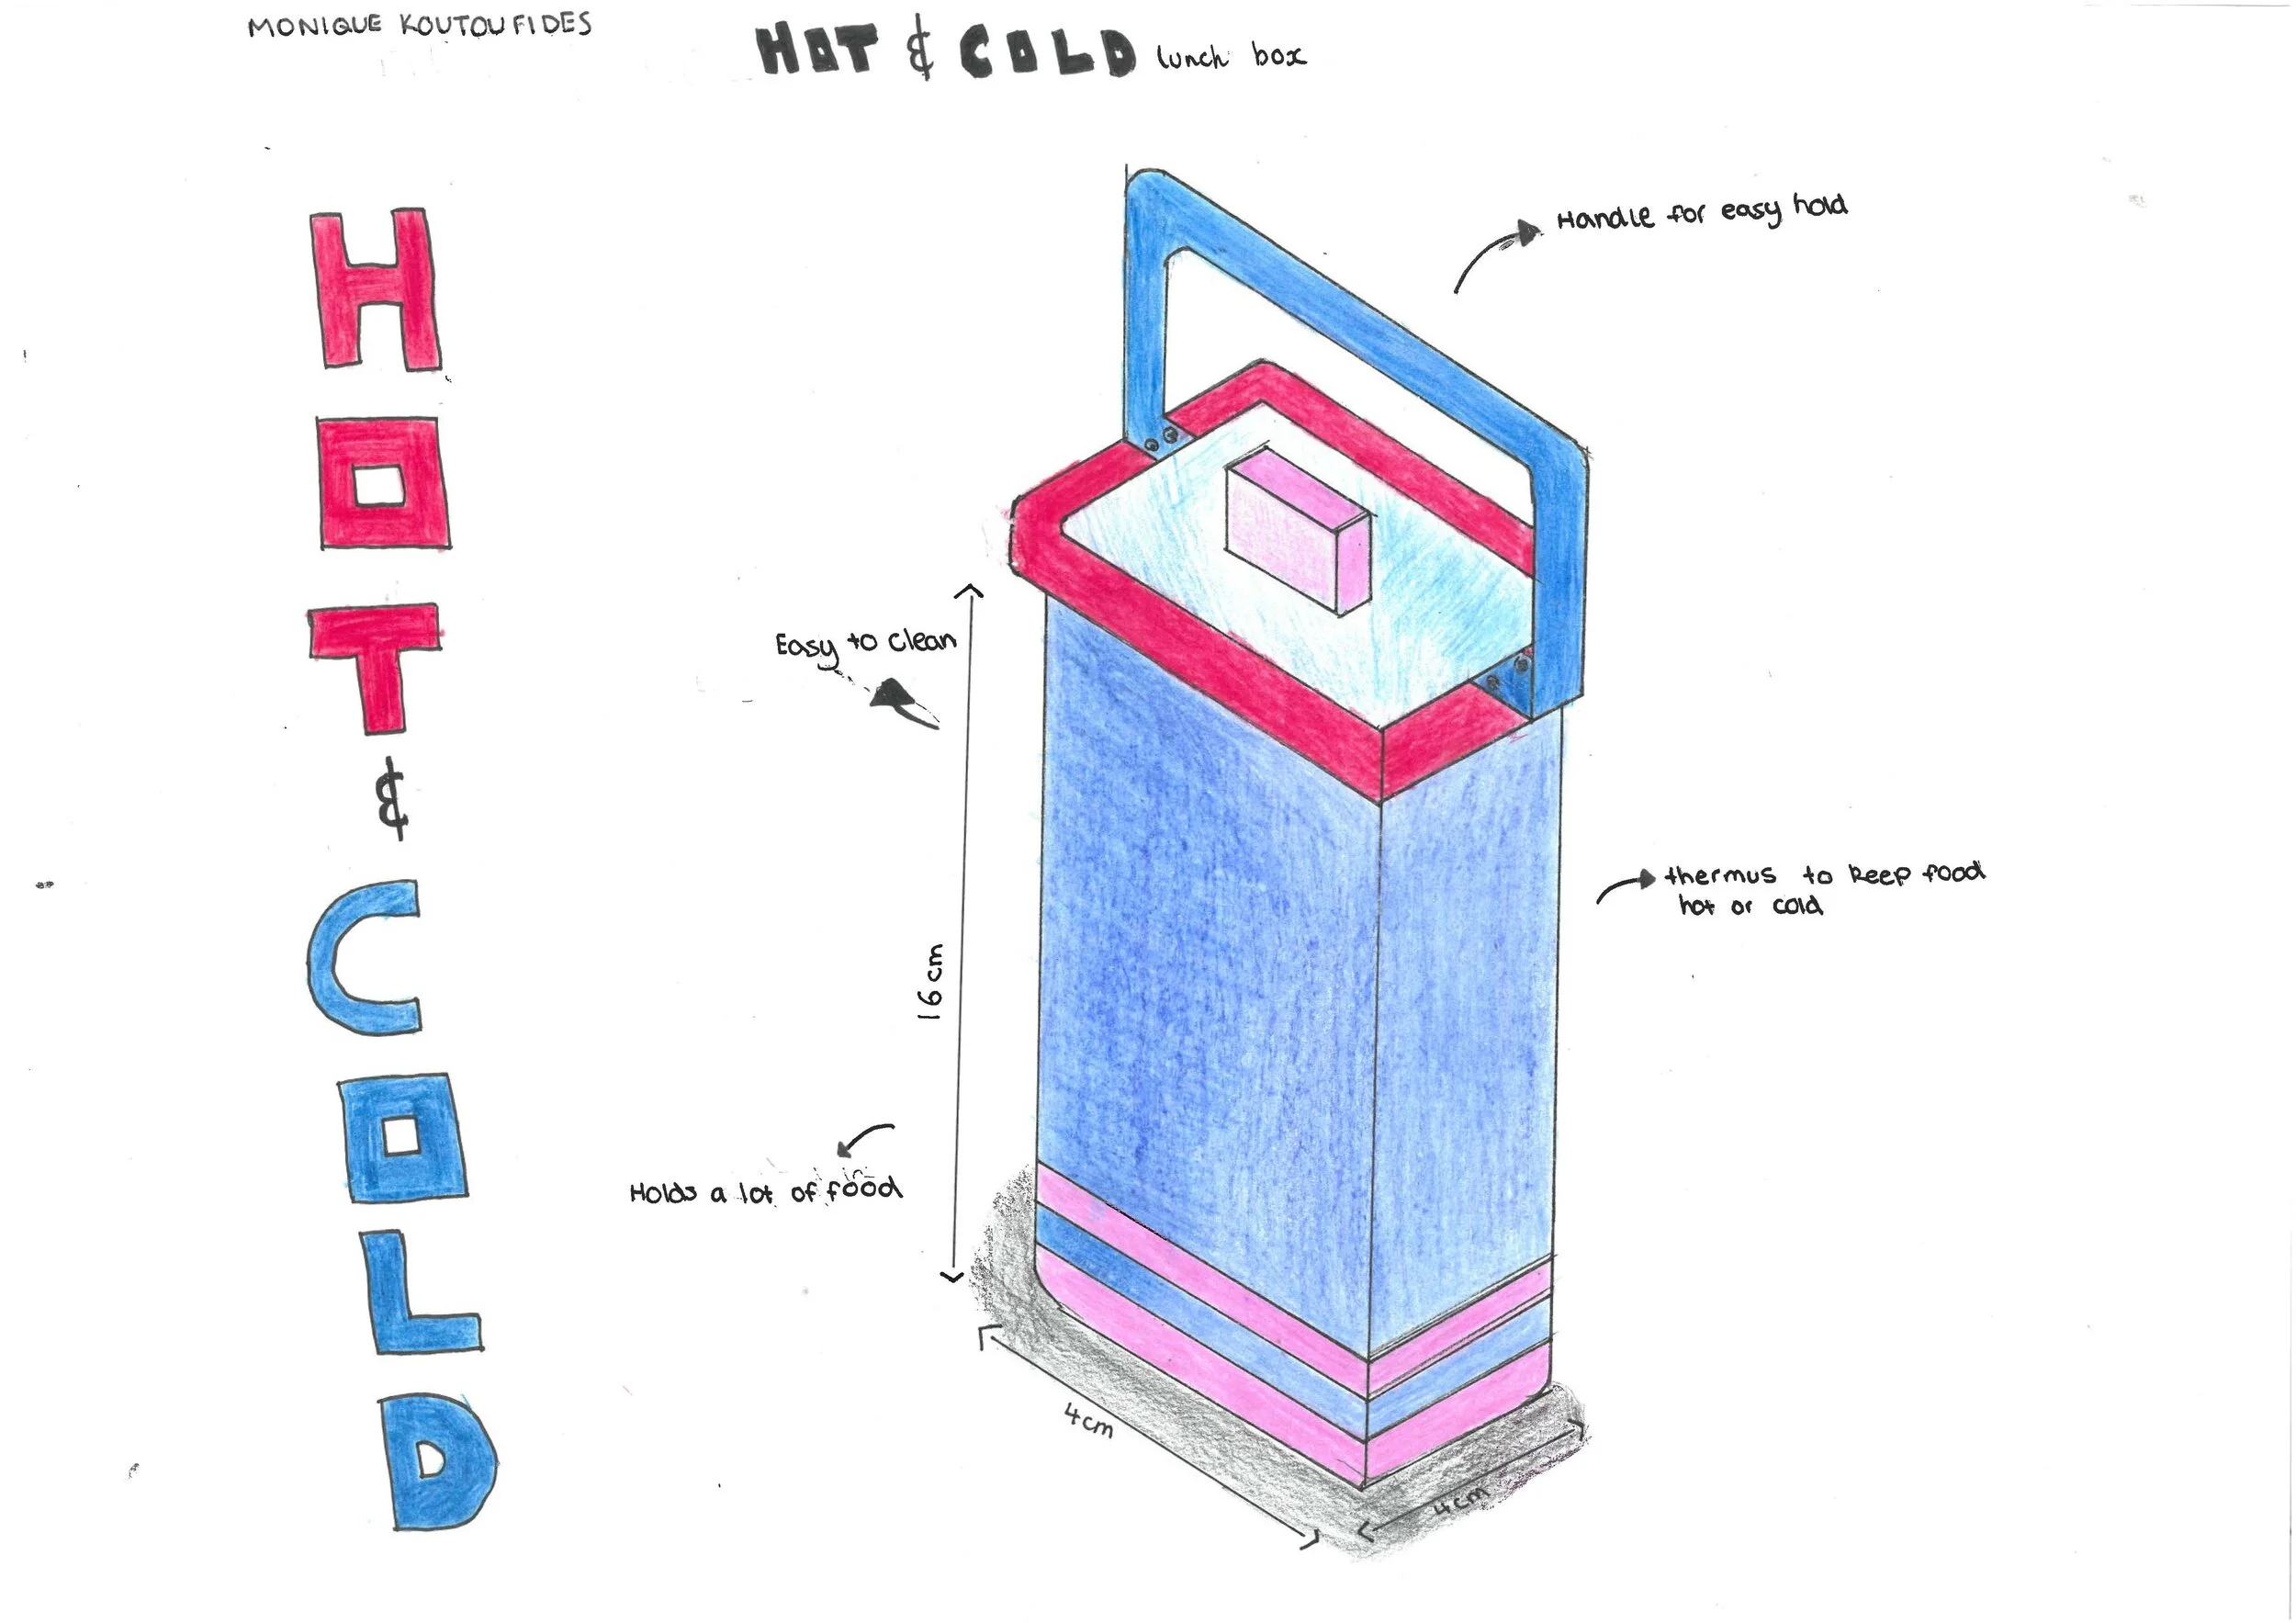 MONIQUE KOUTOUFIDES
HOT & COLD lunch box
HOT & COLD
Handle for easy hold
Easy to clean
16cm
thermus to keep food
hot or cold
Holds a lot of food
4cm
4cm